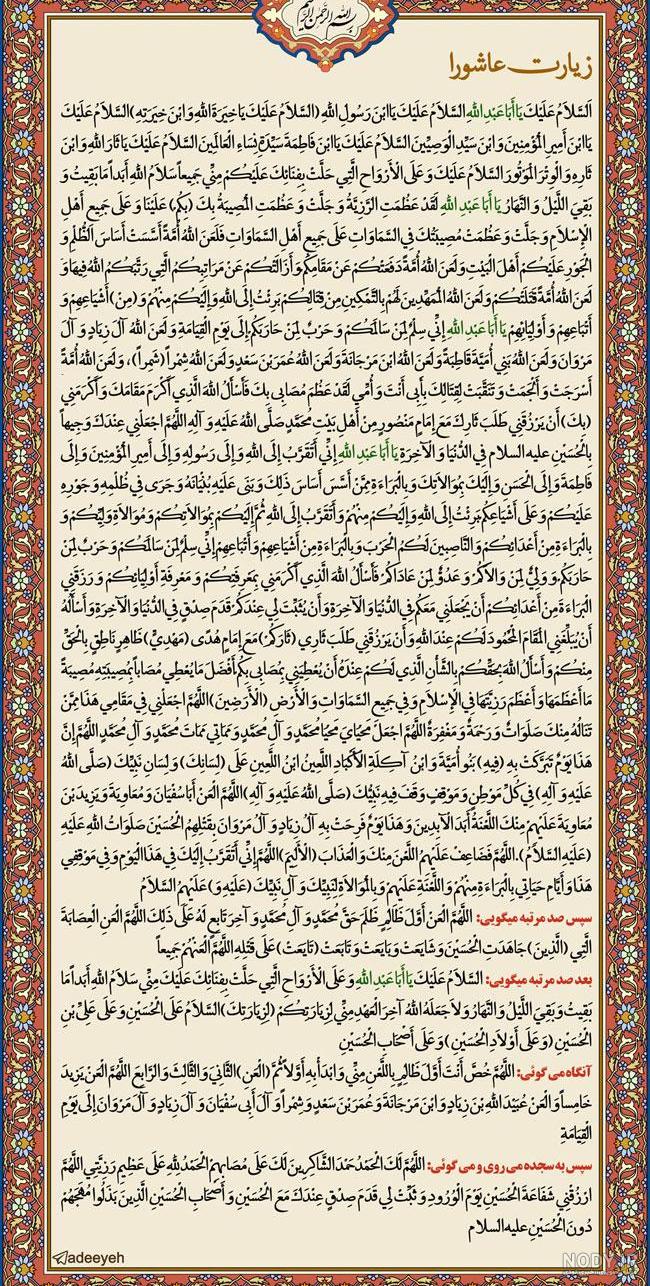 بسم الله الرحمن الرحیم
زیارت عاشورا
اَلسَّلاَمُ عَلَيْكَ يَا أَبَا عَبْدِ اللهِ السَّلاَمُ عَلَيْكَ يَا ابْنَ رَسُولِ اللهِ (السَّلاَمُ عَلَيْكَ يَا خِيَرَةَ اللهِ وَ ابْنَ خِيَرَتِهِ) السَّلاَمُ عَلَيْكَ
يَا ابْنَ أَمِيرِ الْمُؤْمِنِينَ وَ ابْنَ سَيِّدِ الْوَصِيِّينَ السَّلاَمُ عَلَيْكَ يَا ابْنَ فَاطِمَةَ سَيِّدَةِ نِسَاءِ الْعَالَمِينَ السَّلاَمُ عَلَيْكَ يَا ثَارَ اللهِ وَ ابْنَ
ثَارِهِ وَ الْوِتْرَ الْمَوْتُورَ السَّلاَمُ عَلَيْكَ وَ عَلَى الْأَرْوَاحِ الَّتِي حَلَّتْ بِفِنَائِكَ عَلَيْكُمْ مِنِّي جَمِيعاً سَلاَمُ اللهِ أَبَداً مَا بَقِيتُ وَ
بَقِيَ اللَّيْلُ وَ النَّهَارُ يَا أَبَا عَبْدِ اللهِ لَقَدْ عَظُمَتِ الرَّزِيَّةُ وَ جَلَّتْ وَ عَظُمَتِ الْمُصِيبَةُ بِكَ (بِكُمْ) عَلَيْنَا وَ عَلَى جَمِيعِ أَهْلِ
الْإِسْلاَمِ وَ جَلَّتْ وَ عَظُمَتْ مُصِيبَتُكَ فِي السَّمَاوَاتِ عَلَى جَمِيعِ أَهْلِ السَّمَاوَاتِ فَلَعَنَ اللهُ أُمَّةً أَسَّسَتْ أَسَاسَ الظُّلْمِ وَ
الْجَوْرِ عَلَيْكُمْ أَهْلَ الْبَيْتِ وَ لَعَنَ اللهُ أُمَّةً دَفَعَتْكُمْ عَنْ مَقَامِكُمْ وَ أَزَالَتْكُمْ عَنْ مَرَاتِبِكُمُ الَّتِي رَتَّبَكُمُ اللهُ فِيهَا وَ
لَعَنَ اللهُ أُمَّةً قَتَلَتْكُمْ وَ لَعَنَ اللهُ الْمُمَهِّدِينَ لَهُمْ بِالتَّمْكِينِ مِنْ قِتَالِكُمْ بَرِئْتُ إِلَى اللهِ وَ إِلَيْكُمْ مِنْهُمْ وَ (مِنْ) أَشْيَاعِهِمْ وَ
أَتْبَاعِهِمْ وَ أَوْلِيَائِهِمْ يَا أَبَا عَبْدِ اللهِ إِنِّي سِلْمٌ لِمَنْ سَالَمَكُمْ وَ حَرْبٌ لِمَنْ حَارَبَكُمْ إِلَى يَوْمِ الْقِيَامَةِ وَ لَعَنَ اللهُ آلَ زِيَادٍ وَ آلَ
مَرْوَانَ وَ لَعَنَ اللهُ بَنِي أُمَيَّةَ قَاطِبَةً وَ لَعَنَ اللهُ ابْنَ مَرْجَانَةَ وَ لَعَنَ اللهُ عُمَرَ بْنَ سَعْدٍ وَ لَعَنَ اللهُ شِمْراً (شَمِراً)، وَ لَعَنَ اللهُ أُمَّةً
أَسْرَجَتْ وَ أَلْجَمَتْ وَ تَنَقَّبَتْ لِقِتَالِكَ بِأَبِي أَنْتَ وَ أُمِّي لَقَدْ عَظُمَ مُصَابِي بِكَ فَأَسْأَلُ اللهَ الَّذِي أَكْرَمَ مَقَامَكَ وَ أَكْرَمَنِي
(بِكَ) أَنْ يَرْزُقَنِي طَلَبَ ثَارِكَ مَعَ إِمَامٍ مَنْصُورٍ مِنْ أَهْلِ بَيْتِ مُحَمَّدٍ صَلَّى اللهُ عَلَيْهِ وَ آلِهِ اللَّهُمَّ اجْعَلْنِي عِنْدَكَ وَجِيهاً
بِالْحُسَيْنِ علیه السلام فِي الدُّنْيَا وَ الْآخِرَةِ يَا أَبَا عَبْدِ اللهِ إِنِّي أَتَقَرَّبُ إِلَى اللهِ وَ إِلَى رَسُولِهِ وَ إِلَى أَمِيرِ الْمُؤْمِنِينَ وَ إِلَى
فَاطِمَةَ وَ إِلَى الْحَسَنِ وَ إِلَيْكَ بِمُوَالاَتِكَ وَ بِالْبَرَاءَةِ مِمَّنْ أَسَّسَ أَسَاسَ ذَلِكَ وَ بَنَى عَلَيْهِ بُنْيَانَهُ وَ جَرَى فِي ظُلْمِهِ وَ جَوْرِهِ
عَلَيْكُمْ وَ عَلَى أَشْيَاعِكُمْ بَرِئْتُ إِلَى اللهِ وَ إِلَيْكُمْ مِنْهُمْ وَ أَتَقَرَّبُ إِلَى اللهِ ثُمَّ إِلَيْكُمْ بِمُوَالاَتِكُمْ وَ مُوَالاَةِ وَلِيِّكُمْ وَ
بِالْبَرَاءَةِ مِنْ أَعْدَائِكُمْ وَ النَّاصِبِينَ لَكُمُ الْحَرْبَ وَ بِالْبَرَاءَةِ مِنْ أَشْيَاعِهِمْ وَ أَتْبَاعِهِمْ إِنِّي سِلْمٌ لِمَنْ سَالَمَكُمْ وَ حَرْبٌ لِمَنْ
حَارَبَكُمْ وَ وَلِيٌّ لِمَنْ وَالاَكُمْ وَ عَدُوٌّ لِمَنْ عَادَاكُمْ فَأَسْأَلُ اللهَ الَّذِي أَكْرَمَنِي بِمَعْرِفَتِكُمْ وَ مَعْرِفَةِ أَوْلِيَائِكُمْ وَ رَزَقَنِي
الْبَرَاءَةَ مِنْ أَعْدَائِكُمْ أَنْ يَجْعَلَنِي مَعَكُمْ فِي الدُّنْيَا وَ الْآخِرَةِ وَ أَنْ يُثَبِّتَ لِي عِنْدَكُمْ قَدَمَ صِدْقٍ فِي الدُّنْيَا وَ الْآخِرَةِ وَ أَسْأَلُهُ
أَنْ يُبَلِّغَنِي الْمَقَامَ الْمَحْمُودَ لَكُمْ عِنْدَ اللهِ وَ أَنْ يَرْزُقَنِي طَلَبَ ثَارِي (ثَارَكُمْ) مَعَ إِمَامٍ هُدًى (مَهْدِيٍّ) ظَاهِرٍ نَاطِقٍ بِالْحَقِّ
مِنْكُمْ وَ أَسْأَلُ اللهَ بِحَقِّكُمْ وَ بِالشَّأْنِ الَّذِي لَكُمْ عِنْدَهُ أَنْ يُعْطِيَنِي بِمُصَابِي بِكُمْ أَفْضَلَ مَا يُعْطِي مُصَاباً بِمُصِيبَتِهِ مُصِيبَةً
مَا أَعْظَمَهَا وَ أَعْظَمَ رَزِيَّتَهَا فِي الْإِسْلاَمِ وَ فِي جَمِيعِ السَّمَاوَاتِ وَ الْأَرْضِ (الْأَرَضِينَ) اللَّهُمَّ اجْعَلْنِي فِي مَقَامِي هَذَا مِمَّنْ
تَنَالُهُ مِنْكَ صَلَوَاتٌ وَ رَحْمَةٌ وَ مَغْفِرَةٌ اللَّهُمَّ اجْعَلْ مَحْيَايَ مَحْيَا مُحَمَّدٍ وَ آلِ مُحَمَّدٍ وَ مَمَاتِي مَمَاتَ مُحَمَّدٍ وَ آلِ مُحَمَّدٍ اللَّهُمَّ إِنَّ
هَذَا يَوْمٌ تَبَرَّكَتْ بِهِ (فِيهِ) بَنُو أُمَيَّةَ وَ ابْنُ آكِلَةِ الْأَكْبَادِ اللَّعِينُ ابْنُ اللَّعِينِ عَلَى (لِسَانِكَ) وَ لِسَانِ نَبِيِّكَ (صَلَّى اللهُ
عَلَيْهِ وَ آلِهِ) فِي كُلِّ مَوْطِنٍ وَ مَوْقِفٍ وَقَفَ فِيهِ نَبِيُّكَ (صَلَّى اللهُ عَلَيْهِ وَ آلِهِ) اللَّهُمَّ الْعَنْ أَبَا سُفْيَانَ وَ مُعَاوِيَةَ وَ يَزِيدَ بْنَ
مُعَاوِيَةَ عَلَيْهِمْ مِنْكَ اللَّعْنَةُ أَبَدَ الْآبِدِينَ وَ هَذَا يَوْمٌ فَرِحَتْ بِهِ آلُ زِيَادٍ وَ آلُ مَرْوَانَ بِقَتْلِهِمُ الْحُسَيْنَ صَلَوَاتُ اللهِ عَلَيْهِ
(عَلَيْهِ السَّلاَمُ). اللَّهُمَّ فَضَاعِفْ عَلَيْهِمُ اللَّعْنَ مِنْكَ وَ الْعَذَابَ (الْأَلِيمَ) اللَّهُمَّ إِنِّي أَتَقَرَّبُ إِلَيْكَ فِي هَذَا الْيَوْمِ وَ فِي مَوْقِفِي
هَذَا وَ أَيَّامِ حَيَاتِي بِالْبَرَاءَةِ مِنْهُمْ وَ اللَّعْنَةِ عَلَيْهِمْ وَ بِالْمُوَالاَةِ لِنَبِيِّكَ وَ آلِ نَبِيِّكَ (عَلَيْهِ وَ) عَلَيْهِمُ السَّلاَمُ
سپس صد مرتبه میگویی: اللَّهُمَّ الْعَنْ أَوَّلَ ظَالِمٍ ظَلَمَ حَقَّ مُحَمَّدٍ وَ آلِ مُحَمَّدٍ وَ آخِرَ تَابِعٍ لَهُ عَلَى ذَلِكَ اللَّهُمَّ الْعَنِ الْعِصَابَةَ
الَّتِي (الَّذِينَ) جَاهَدَتِ الْحُسَيْنَ وَ شَايَعَتْ وَ بَايَعَتْ وَ تَابَعَتْ (تَايَعَتْ) عَلَى قَتْلِهِ اللَّهُمَّ الْعَنْهُمْ جَمِيعاً
بعد صد مرتبه میگویی: السَّلاَمُ عَلَيْكَ يَا أَبَا عَبْدِ اللهِ وَ عَلَى الْأَرْوَاحِ الَّتِي حَلَّتْ بِفِنَائِكَ عَلَيْكَ مِنِّي سَلاَمُ اللهِ أَبَداً مَا
بَقِيتُ وَ بَقِيَ اللَّيْلُ وَ النَّهَارُ وَ لاَ جَعَلَهُ اللهُ آخِرَ الْعَهْدِ مِنِّي لِزِيَارَتِكُمْ (لِزِيَارَتِكَ) السَّلاَمُ عَلَى الْحُسَيْنِ وَ عَلَى عَلِيِّ بْنِ
الْحُسَيْنِ (وَ عَلَى أَوْلاَدِ الْحُسَيْنِ) وَ عَلَى أَصْحَابِ الْحُسَيْنِ
آنگاه می گوئی: اللَّهُمَّ خُصَّ أَنْتَ أَوَّلَ ظَالِمٍ بِاللَّعْنِ مِنِّي وَ ابْدَأْ بِهِ أَوَّلاً ثُمَّ (الْعَنِ) الثَّانِيَ وَ الثَّالِثَ وَ الرَّابِعَ اللَّهُمَّ الْعَنْ يَزِيدَ
خَامِساً وَ الْعَنْ عُبَيْدَ اللهِ بْنَ زِيَادٍ وَ ابْنَ مَرْجَانَةَ وَ عُمَرَ بْنَ سَعْدٍ وَ شِمْراً وَ آلَ أَبِي سُفْيَانَ وَ آلَ زِيَادٍ وَ آلَ مَرْوَانَ إِلَى يَوْمِ
الْقِيَامَةِ
سپس به سجده می روی و می گوئی: اللَّهُمَّ لَكَ الْحَمْدُ حَمْدَ الشَّاكِرِينَ لَكَ عَلَى مُصَابِهِمْ الْحَمْدُ لِلهِ عَلَى عَظِيمِ رَزِيَّتِي اللَّهُمَّ
ارْزُقْنِي شَفَاعَةَ الْحُسَيْنِ يَوْمَ الْوُرُودِ وَ ثَبِّتْ لِي قَدَمَ صِدْقٍ عِنْدَكَ مَعَ الْحُسَيْنِ وَ أَصْحَابِ الْحُسَيْنِ الَّذِينَ بَذَلُوا مُهَجَهُمْ
دُونَ الْحُسَيْنِ علیه السلام
adeeyeh
NODY.IR